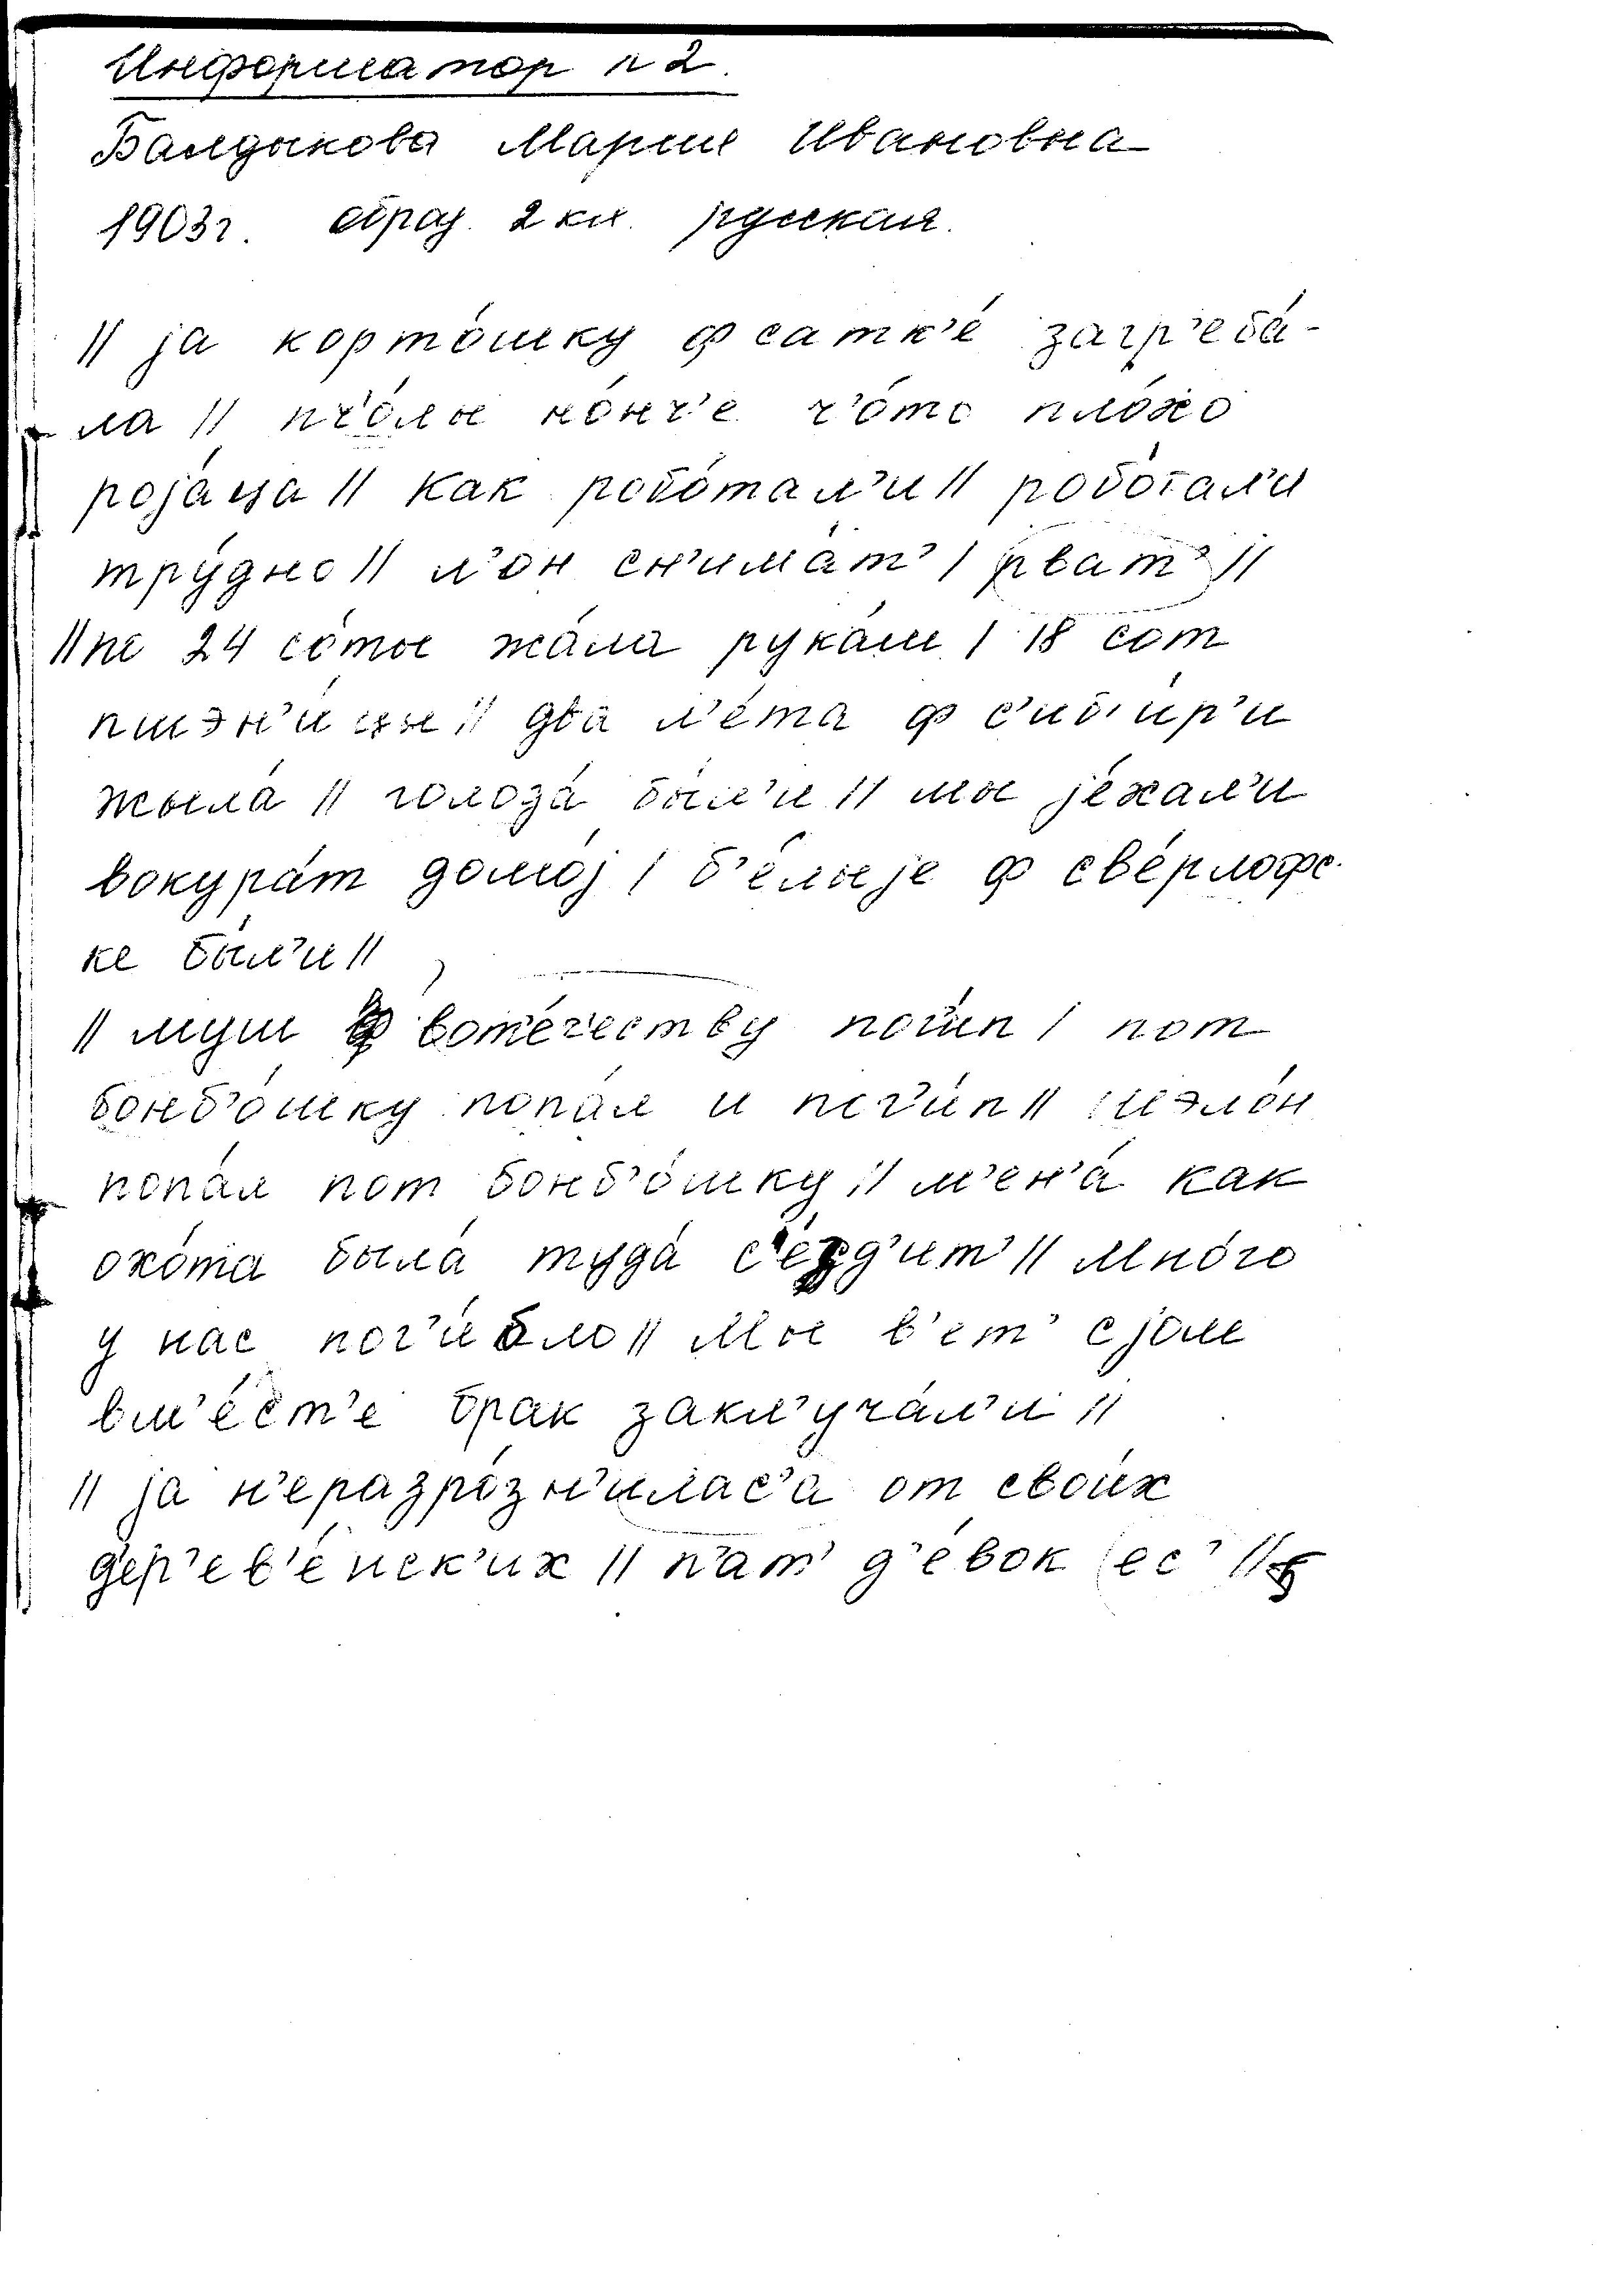 Информатор n 2.
Балдыкова Мария Ивановна
1903г. образ. 2 кл. русская.
|| jа корто́шку ф сатк'е́ загр'еба́-
ла || пч'о́лы но́нч'е ч'о́то пло́хо
роjа́ца || как робо́тал'и || робо́тал'и
тру́дно || л'он сн'има́т' | рват' ||
|| по 24 со́ты жа́ла рука́м | 18 сот
пшэн'и́цы || два л'е́та ф с'иб'и́р'и
жыла́ || голоза́ бы́л'и || мы jе́хал'и
вокура́т домо́j | б'е́лыjе ф све́рлофс-
ке бы́л'и ||
|| муш вот'е́ч'еству пог'и́п | пот
бонб'о́шку попа́л и пог'и́п || шэло́н
попа́л пот бонб'о́шку || м'ен'а́ как
охо́та была́ туда́ с'е́зд'ит' || мно́го
у нас пог'и́бло || мы в'ет' с jом
вм'е́ст'е брак закл'уча́л'и ||
|| jа н'еразро́зн'илас'а от свои́х
д'ер'ев'е́нск'их || п'ат' д'е́вок ес' ||